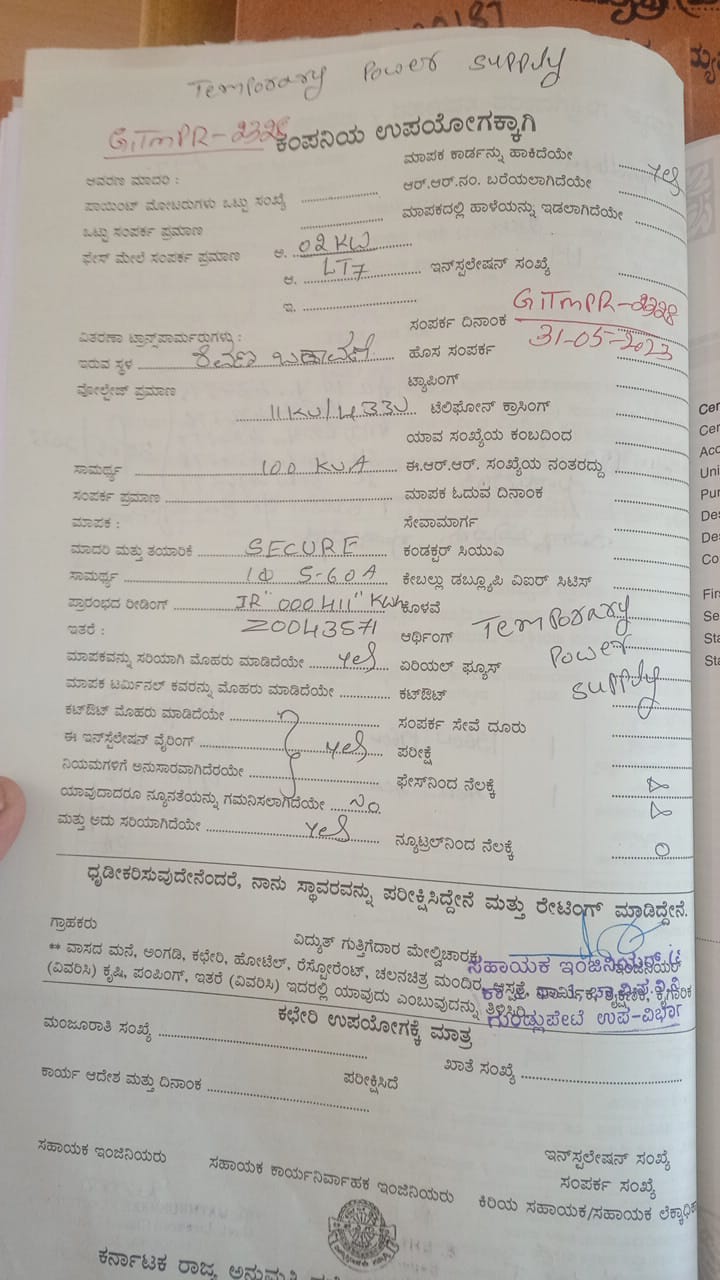 0187
Temporary Power supply
GiTmPR-2328 ಕಂಪನಿಯ ಉಪಯೋಗಕ್ಕಾಗಿ
ಮಾಪಕ ಕಾರ್ಡನ್ನು ಹಾಕಿದೆಯೇ Yes
ಆವರಣ ಮಾದರಿ :
ಆರ್.ಆರ್.ನಂ. ಬರೆಯಲಾಗಿದೆಯೇ
ಪಾಯಿಂಟ್ ಮೋಟರುಗಳು ಒಟ್ಟು ಸಂಖ್ಯೆ
ಮಾಪಕದಲ್ಲಿ ಹಾಳೆಯನ್ನು ಇಡಲಾಗಿದೆಯೇ
ಒಟ್ಟು ಸಂಪರ್ಕ ಪ್ರಮಾಣ
ಫೇಸ್ ಮೇಲೆ ಸಂಪರ್ಕ ಪ್ರಮಾಣ ಅ. 02KW
ಆ. LT7 ಇನ್‌ಸ್ಟಲೇಷನ್ ಸಂಖ್ಯೆ GiTmPR-2328
ಇ.
ಸಂಪರ್ಕ ದಿನಾಂಕ 31-05-2023
ವಿತರಣಾ ಟ್ರಾನ್ಸ್‌ಪಾರ್ಮರುಗಳು :
ಇರುವ ಸ್ಥಳ
ಹೊಸ ಸಂಪರ್ಕ
ವೋಲ್ಟೇಜ್ ಪ್ರಮಾಣ
ಟ್ಯಾಪಿಂಗ್
11KV/433V ಟೆಲಿಫೋನ್ ಕ್ರಾಸಿಂಗ್
ಯಾವ ಸಂಖ್ಯೆಯ ಕಂಬದಿಂದ
ಸಾಮರ್ಥ್ಯ 100 KVA ಈ.ಆರ್.ಆರ್. ಸಂಖ್ಯೆಯ ನಂತರದ್ದು
ಸಂಪರ್ಕ ಪ್ರಮಾಣ ಮಾಪಕ ಓದುವ ದಿನಾಂಕ
ಮಾಪಕ : ಸೇವಾಮಾರ್ಗ
ಮಾದರಿ ಮತ್ತು ತಯಾರಿಕೆ SECURE ಕಂಡಕ್ಟರ್ ಸಿಯುಎ
ಸಾಮರ್ಥ್ಯ 1Φ 5-60A ಕೇಬಲ್ಲು ಡಬ್ಲ್ಯೂಪಿ ವಿಐರ್ ಸಿಟಿಸ್
ಪ್ರಾರಂಭದ ರೀಡಿಂಗ್ IR "000411" KWh ಕೊಳವೆ
ಇತರೆ : Z0043571 ಆರ್ಥಿಂಗ್ Temporary
ಮಾಪಕವನ್ನು ಸರಿಯಾಗಿ ಮೊಹರು ಮಾಡಿದೆಯೇ Yes ಏರಿಯಲ್ ಫ್ಯೂಸ್ Power
ಮಾಪಕ ಟರ್ಮಿನಲ್ ಕವರನ್ನು ಮೊಹರು ಮಾಡಿದೆಯೇ ಕಟ್‌ಔಟ್ supply
ಕಟ್‌ಔಟ್ ಮೊಹರು ಮಾಡಿದೆಯೇ ಸಂಪರ್ಕ ಸೇವೆ ದೂರು
ಈ ಇನ್‌ಸ್ಟೆಲೇಷನ್ ವೈರಿಂಗ್ Yes ಪರೀಕ್ಷೆ
ನಿಯಮಗಳಿಗೆ ಅನುಸಾರವಾಗಿದೆರಯೇ ಫೇಸ್‌ನಿಂದ ನೆಲಕ್ಕೆ
ಯಾವುದಾದರೂ ನ್ಯೂನತೆಯನ್ನು ಗಮನಿಸಲಾಗಿದೆಯೇ No
ಮತ್ತು ಅದು ಸರಿಯಾಗಿದೆಯೇ Yes ನ್ಯೂಟ್ರಲ್‌ನಿಂದ ನೆಲಕ್ಕೆ 0
ಧೃಡೀಕರಿಸುವುದೇನೆಂದರೆ, ನಾನು ಸ್ಥಾವರವನ್ನು ಪರೀಕ್ಷಿಸಿದ್ದೇನೆ ಮತ್ತು ರೇಟಿಂಗ್ ಮಾಡಿದ್ದೇನೆ.
ಗ್ರಾಹಕರು ವಿದ್ಯುತ್ ಗುತ್ತಿಗೆದಾರ ಮೇಲ್ವಿಚಾರಕ
ಸಹಾಯಕ ಇಂಜಿನಿಯರ್
** ವಾಸದ ಮನೆ, ಅಂಗಡಿ, ಕಛೇರಿ, ಹೋಟೆಲ್, ರೆಸ್ಟೋರೆಂಟ್, ಚಲನಚಿತ್ರ ಮಂದಿರ, ಆಸ್ಪತ್ರೆ,
(ವಿವರಿಸಿ) ಕೃಷಿ, ಪಂಪಿಂಗ್, ಇತರೆ (ವಿವರಿಸಿ) ಇದರಲ್ಲಿ ಯಾವುದು ಎಂಬುವುದನ್ನು ತಿಳಿಸಿರಿ
ಗುಂಡ್ಲುಪೇಟೆ ಉಪ-ವಿಭಾಗ
ಕಛೇರಿ ಉಪಯೋಗಕ್ಕೆ ಮಾತ್ರ
ಮಂಜೂರಾತಿ ಸಂಖ್ಯೆ ಖಾತೆ ಸಂಖ್ಯೆ
ಕಾರ್ಯ ಆದೇಶ ಮತ್ತು ದಿನಾಂಕ ಪರೀಕ್ಷಿಸಿದೆ
ಇನ್‌ಸ್ಟಲೇಷನ್ ಸಂಖ್ಯೆ
ಸಂಪರ್ಕ ಸಂಖ್ಯೆ
ಸಹಾಯಕ ಇಂಜಿನಿಯರು ಸಹಾಯಕ ಕಾರ್ಯನಿರ್ವಾಹಕ ಇಂಜಿನಿಯರು ಕಿರಿಯ ಸಹಾಯಕ/ಸಹಾಯಕ
ಕರ್ನಾಟಕ ರಾಜ್ಯ